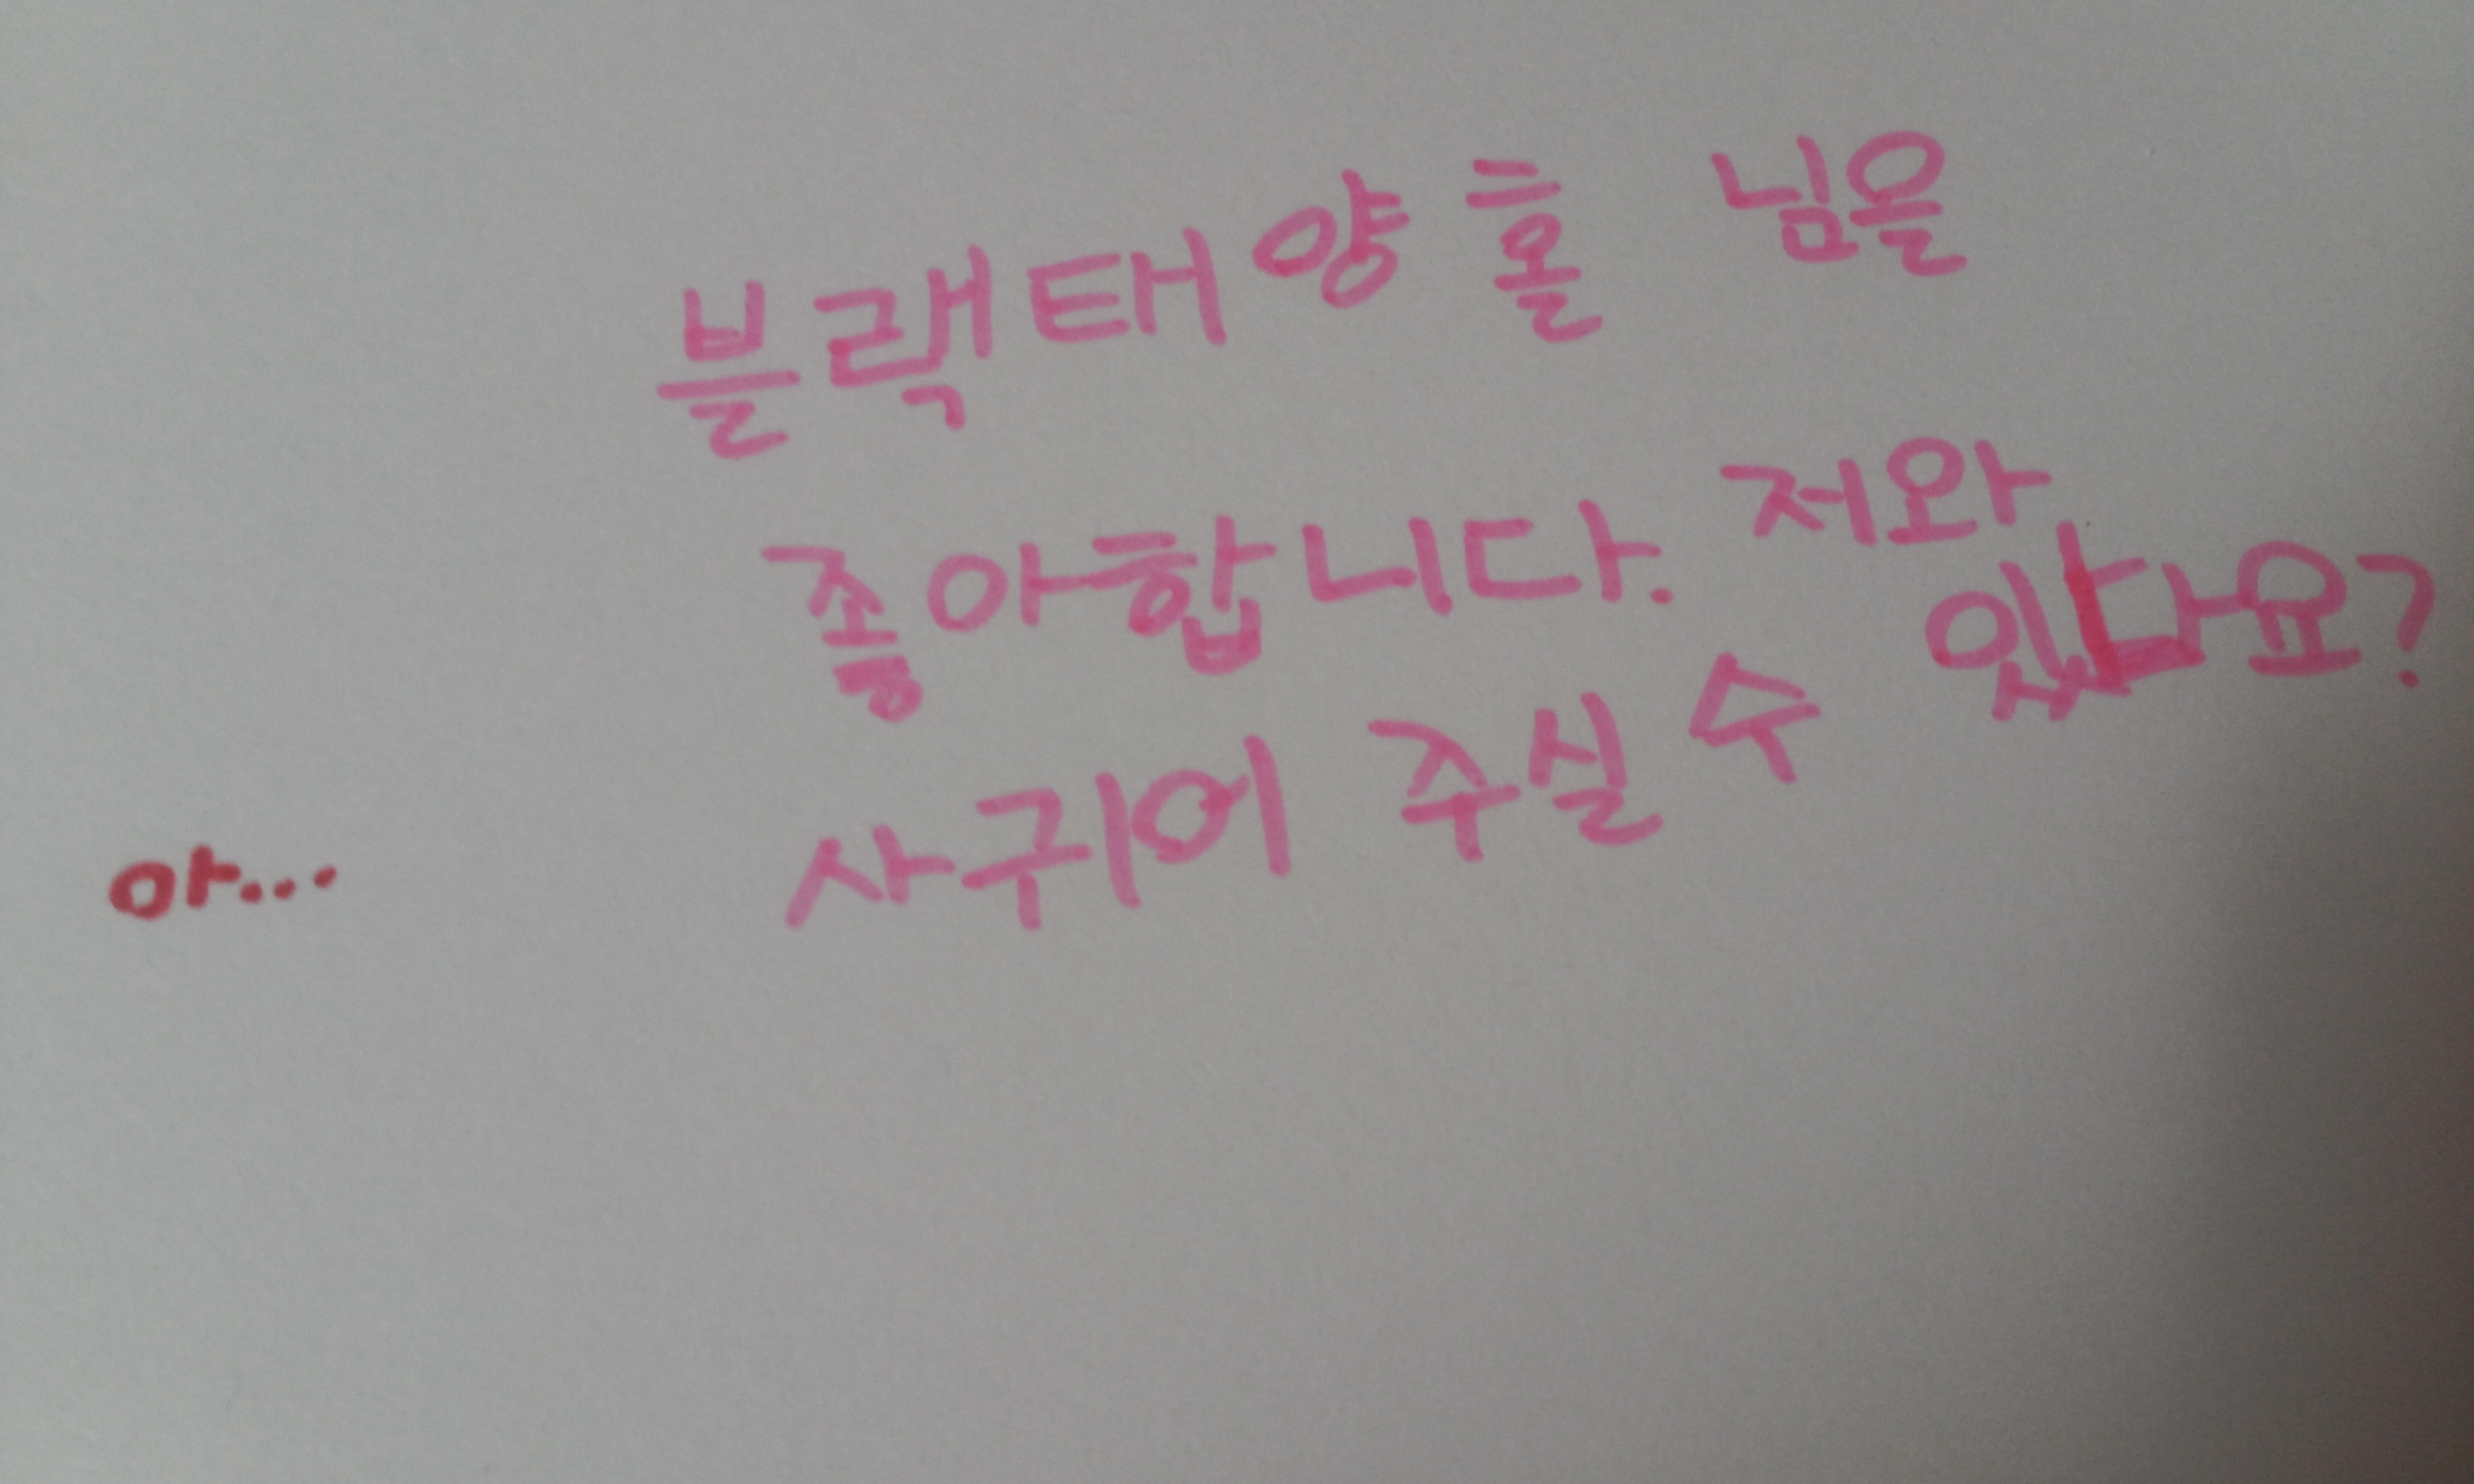 블랙태양홀 님을
좋아합니다. 저와
사귀어 주실 수 있다요?
아...